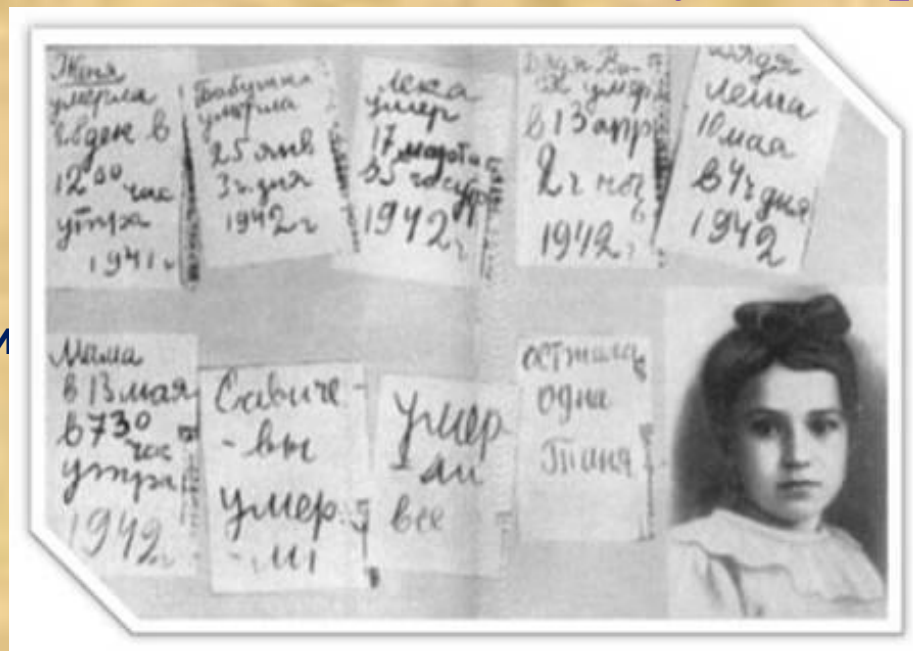 Женя
умерла
28 дек в
12 00 час
утра
1941 г
Бабушка
умерла
25 янв
3 ч. дня
1942 г
Лека
умер
17 марта
в 5 час утр
1942 г
Дядя Ва-
ся умер
в 13 апр
2 ч ночь
1942 г
Дядя
Леша
10 мая
в 4 ч дня
1942
Мама
в 13 мая
в 730
час
утра
1942 г
Савиче-
-вы
умер
-ли
умер
-ли
все
осталась
одна
Таня